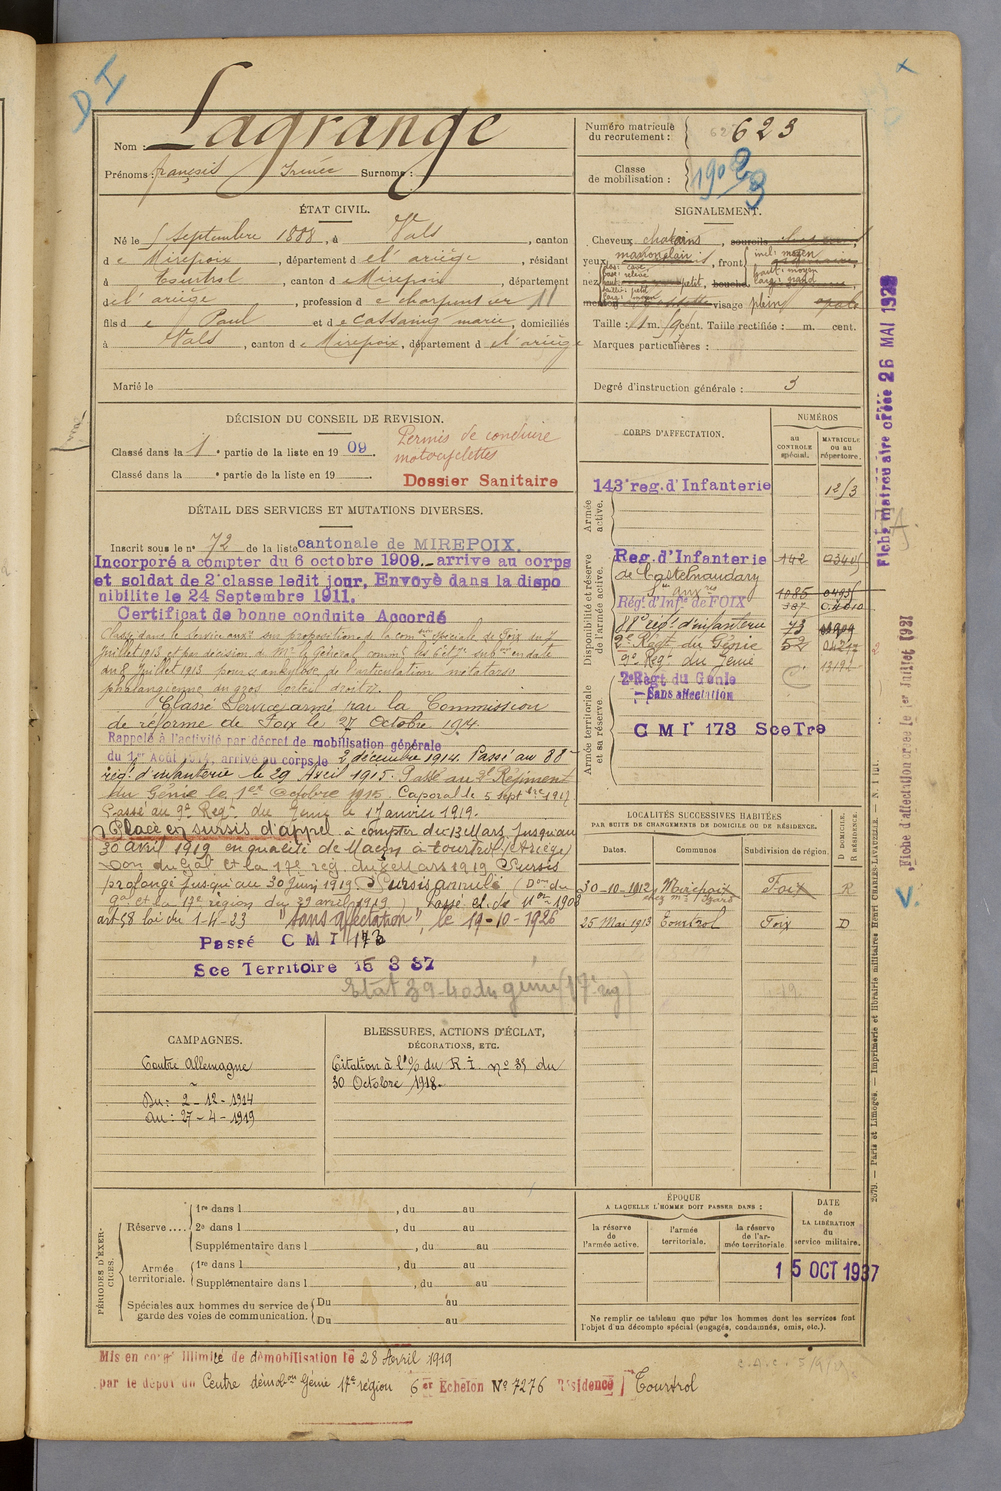 D I
Nom : Lagrange
Prénoms : françois Irénée Surnoms :
Numéro matricule du recrutement : 623
Classe de mobilisation : 1903
ÉTAT CIVIL.
Né le 5 Septembre 1888, à Vals, canton
d e Mirepoix, département d e l'ariège, résidant
à Tourtrol, canton d e Mirepoix, département
d e l'ariège, profession d e charpentier 11
fils d e Paul et d e Cassaing marie, domiciliés
à Vals, canton d e Mirepoix, département d e l'ariège
Marié le
SIGNALEMENT.
Cheveux chatains, sourcils
yeux marron clair, front incl: moyen haut: moyen larg: grand
nez dos: cave base: relevé haut: petit, bouche
menton visage plein
Taille : 1 m. cent. Taille rectifiée : m. cent.
Marques particulières :
Degré d'instruction générale : 3
DÉCISION DU CONSEIL DE REVISION.
Classé dans la 1e partie de la liste en 19 09.
Classé dans la e partie de la liste en 19
Permis de conduire
motocyclettes
Dossier Sanitaire
DÉTAIL DES SERVICES ET MUTATIONS DIVERSES.
Inscrit sous le n° 72 de la liste cantonale de MIREPOIX.
Incorporé a compter du 6 octobre 1909. arrive au corps
et soldat de 2e classe ledit jour. Envoyé dans la dispo
nibilité le 24 Septembre 1911.
Certificat de bonne conduite Accordé
Classé dans le service auxre sur proposition de la comon spéciale de Foix du 7
Juillet 1913 et par décision de Mr le Général commt les
du 8 Juillet 1913 pour ankylose de l'articulation métatarso
phalangienne du gros orteil droit.
Classé Service armé par la Commission
de réforme de Foix le 27 Octobre 1914.
Rappelé à l'activité par décret de mobilisation générale
du 1er Août 1914, arrivé au corps le 2 décembre 1914. Passé au 88e
rég. d'infanterie le 29 Avril 1915. Passé au 2e Régiment
du Génie le 1er Octobre 1915. Caporal le 5 Septbre 1917
Passé au 9e Regt du Génie le 17 janvier 1919.
Placé en sursis d'appel à compter du 13 Mars jusqu'au
30 avril 1919 en qualité de Maçon à tourtrol (Ariège)
Don du Gal Ct la 17e reg. du 9 Mars 1919 Sursis
prolongé jusqu'au 30 Juin 1919 Sursis annulé (Don du
Gal Ct la 17e région du 29 avril 1919), Passé cl. de Mon 1903
art 58 loi du 1-4-23 "sans affectation", le 19-10-1926
Passé C M I 173
Sce Territoire 15 3 37
Etat 39-40 du génie (17e reg)
CORPS D'AFFECTATION.
NUMÉROS
au CONTROLE spécial.
MATRICULE ou au répertoire.
Armée active.
143e reg. d'Infanterie 1213
Disponibilité et réserve de l'armée active.
Reg. d'Infanterie 142
de Castelnaudary
Sce auxre 1085
Rég. d'Infie de FOIX
88e régt d'infanterie 73
2e Régt du Génie 52
9e Regt du Génie
Armée territoriale et sa réserve
2e Régt du Génie
Sans affectation
C M I 173 Sce Tre
LOCALITÉS SUCCESSIVES HABITÉES
PAR SUITE DE CHANGEMENTS DE DOMICILE OU DE RÉSIDENCE.
Dates. Communes Subdivision de région. D DOMICILE. R RÉSIDENCE.
30-10-1912 Mirepoix Foix R
25 Mai 1913 Tourtrol Foix D
CAMPAGNES.
Contre Allemagne
Du: 2-12-1914
au: 27-4-1919
BLESSURES, ACTIONS D'ÉCLAT,
DÉCORATIONS, ETC.
Citation à l'O/ du R.I. no 35 du
30 Octobre 1918.
PÉRIODES D'EXERCICES.
Réserve .... 1re dans l , du au
2e dans l , du au
Supplémentaire dans l , du au
Armée territoriale. 1re dans l , du au
Supplémentaire dans l , du au
Spéciales aux hommes du service de garde des voies de communication. Du au
Du au
ÉPOQUE
A LAQUELLE L'HOMME DOIT PASSER DANS :
la réserve de l'armée active.
l'armée territoriale.
la réserve de l'armée territoriale
DATE de LA LIBÉRATION du service militaire.
15 OCT 1937
Ne remplir ce tableau que pour les hommes dont les services font
l'objet d'un décompte spécial (engagés, condamnés, omis, etc.).
Mis en congé illimité de démobilisation le 28 Avril 1919
par le dépôt du Centre démobon Génie 17e région 6e Echelon No 7276 Résidence Tourtrol
Fiche matriculaire créée 26 MAI 1928
Fiche d'affectation créée le 1er Juillet 1921
V.
2579. — Paris et Limoges. — Imprimerie et librairie militaires Henri CHARLES-LAVAUZELLE.